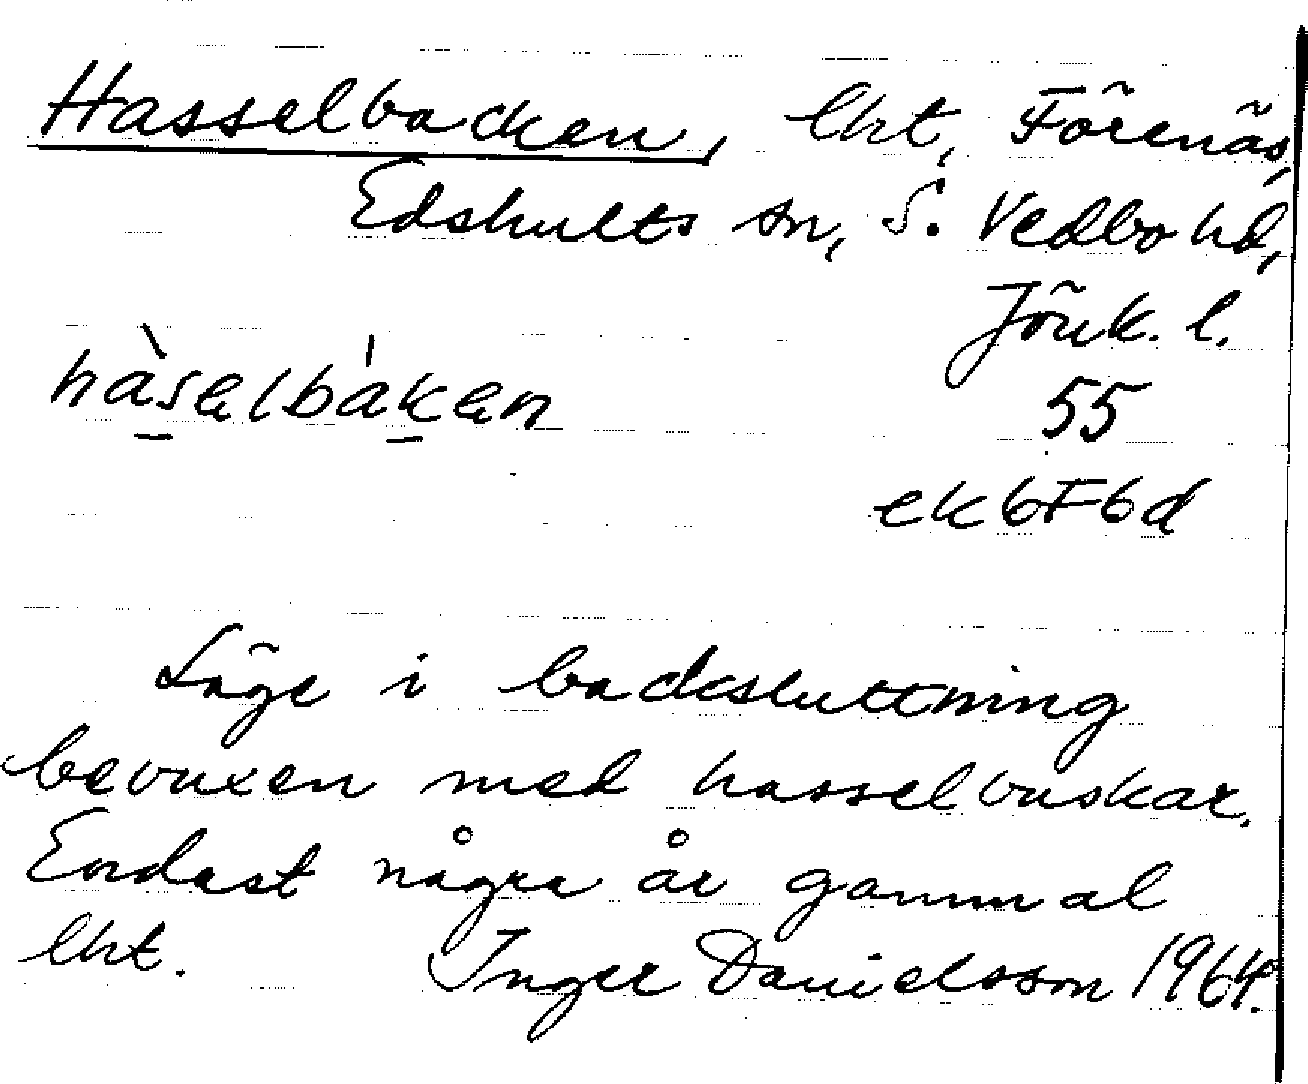 Hasselbacken, lht, Förenäs,
Edshults sn, S. Vedbo hd,
Jönk. l.
hàselbàken
55
ek 6F6d
Läge i backsluttning
bevuxen med hasselbuskar.
Endast några år gammal
lht. Inger Danielsson 1964.